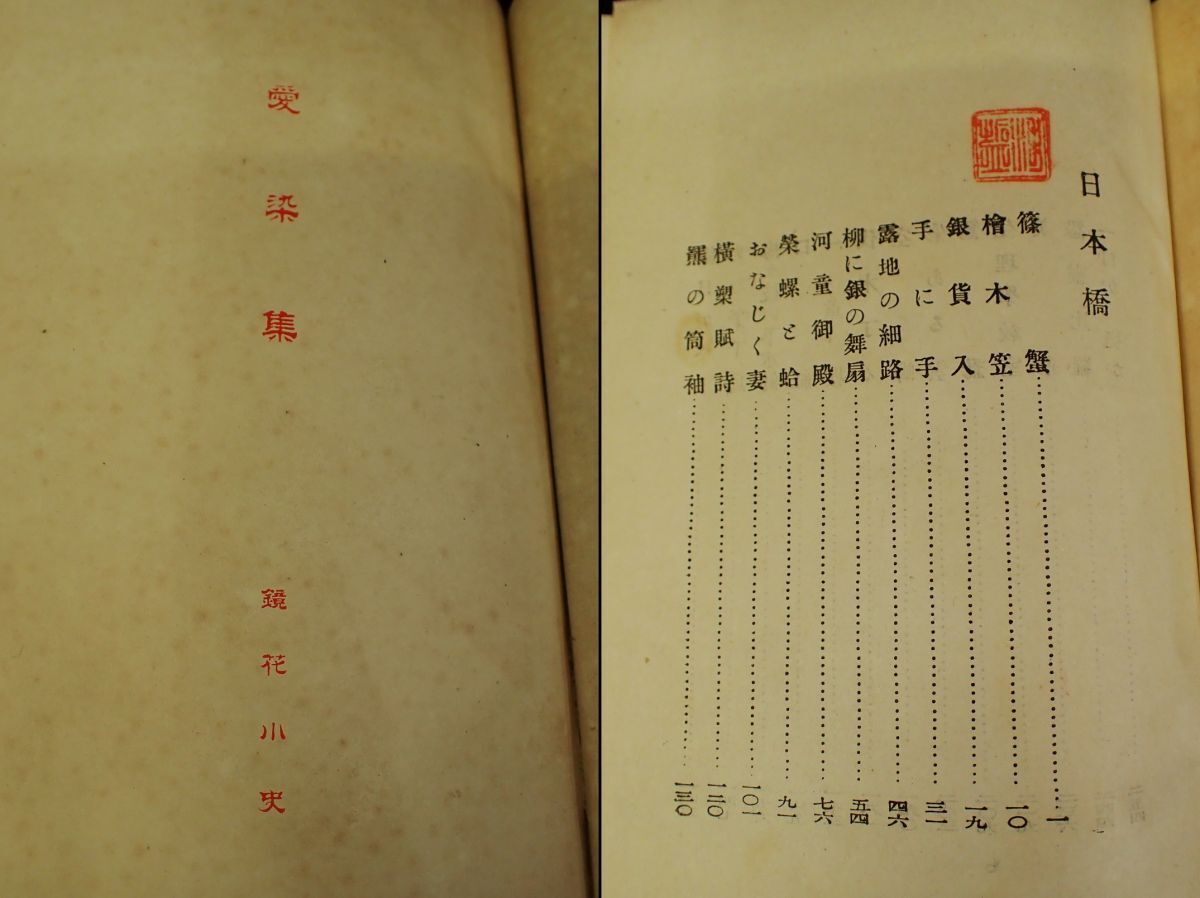 愛染集
鏡花小史
日本橋
篠蟹……一
檜木笠……一〇
銀貨入……一九
手に手……三一
露地の細路……四六
柳に銀の舞扇……五四
河童御殿……七六
榮螺と蛤……九一
おなじく妻……一〇一
横槊賦詩……一二〇
羆の筒袖……一三〇